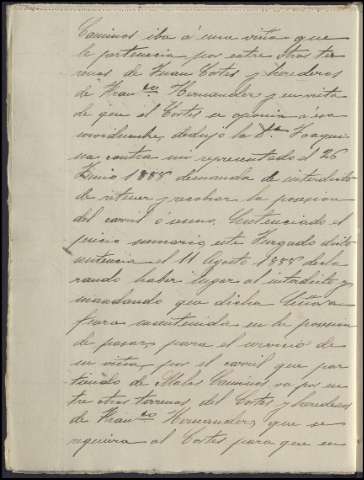 Caminos iba á una viña que
le pertenecia por entre otros ter
renos de Juan Cortes y herederos
de Franco. Hernandez, y en vista
de que el Cortes se oponia á esa
servidumbre, dedujo la Da. Joaqui
na contra mi representado el 26
Junio 1888 demanda de interdicto
de retener y recobrar la posesion
del carril ó senda. Sustanciado el
juicio sumario, este Juzgado dictó
sentencia el 11 Agosto 1888 decla
rando haber lugar al interdicto y
mandando que dicha Señora
fuera mantenida en la posesion
de pasar, para el servicio de
su viña, por el carril que par
tiendo de Malos Caminos va por en
tre otros terrenos del Cortes y herederos
de Franco Hernandez, que se
requiera al Cortes para que en